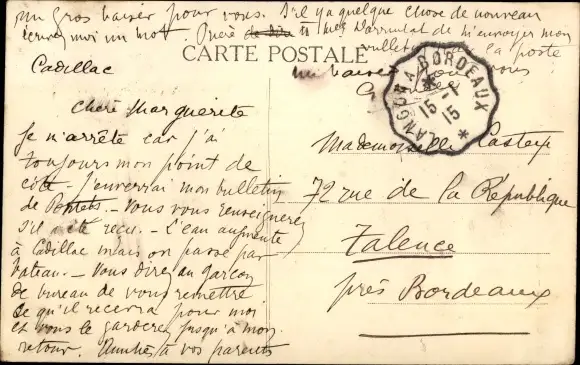 un gros baiser pour vous. S'il y a quelque chose de nouveau
écrivez moi un mot. Prière à Mes Darmutat de m'envoyer mon
bulletin la poste
CARTE POSTALE
un baiser pour vous
Cadillac
Chère Marguerite
Je n'arrête car j'ai
toujours mon point de
côté. J'enverrai mon bulletin
de - Vous vous renseignerez
s'il a été reçu. - L'eau augmente
à Cadillac mais on passe par
bateau. - Vous direz au garçon
de bureau de vous remettre
ce qu'il recevra pour moi
et vous le garderez jusqu'à mon
retour. Amitiés à vos parents
LANGON A BORDEAUX
15-1
15
Mademoiselle Castex
72 rue de la République
Talence
près Bordeaux